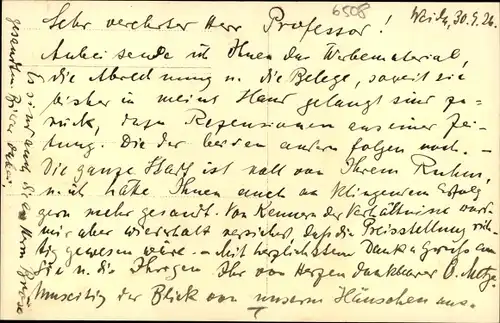 6508
Weida, 30.9.26.
Sehr verehrter Herr Professor!
Anbei sende ich Ihnen das Werbematerial,
die Abrechnung u. die Belege, soweit sie
bisher in meine Hand gelangt sind zu-
rück, dazu Rezensionen aus einer Zei-
tung. Die der beiden andern folgen noch. –
Die ganze Stadt ist voll von Ihrem Ruhm,
u. ich hätte Ihnen auch an klingendem Erfolg
gern mehr gesandt. Von Kennern der Verhältnisse wurde
mir aber wiederholt versichert, daß die Preisstellung rich-
tig gewesen wäre. – Mit herzlichstem Dank u. Gruß an
Sie u. die Ihrigen Ihr von Herzen dankbarer O. Metzge
Umseitig der Blick von unserm Häuschen aus.
Es sind auch die an Herrn
gesandten Bilder dabei.